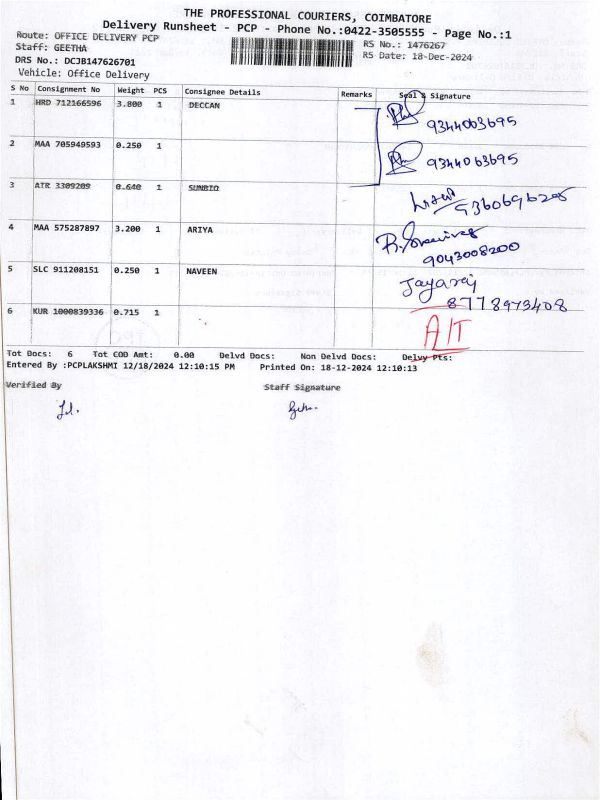 THE PROFESSIONAL COURIERS, COIMBATORE
Delivery Runsheet - PCP - Phone No.:0422-3505555 - Page No.:1
Route: OFFICE DELIVERY PCP
RS No.: 1476267
Staff: GEETHA
RS Date: 18-Dec-2024
DRS No.: DCJB147626701
Vehicle: Office Delivery
S No Consignment No Weight PCS Consignee Details Remarks Seal & Signature
1 HRD 712166596 3.800 1 DECCAN
9344063695
2 MAA 705949593 0.250 1
9344063695
3 ATR 3309209 0.640 1 SUNBIO
9360696205
4 MAA 575287897 3.200 1 ARIYA
9043008200
5 SLC 911208151 0.250 1 NAVEEN
Jayaraj
8778973408
6 KUR 1000839336 0.715 1
A/T
Tot Docs: 6 Tot COD Amt: 0.00 Delvd Docs: Non Delvd Docs: Delvy Pts:
Entered By :PCPLAKSHMI 12/18/2024 12:10:15 PM Printed On: 18-12-2024 12:10:13
Verified By Staff Signature